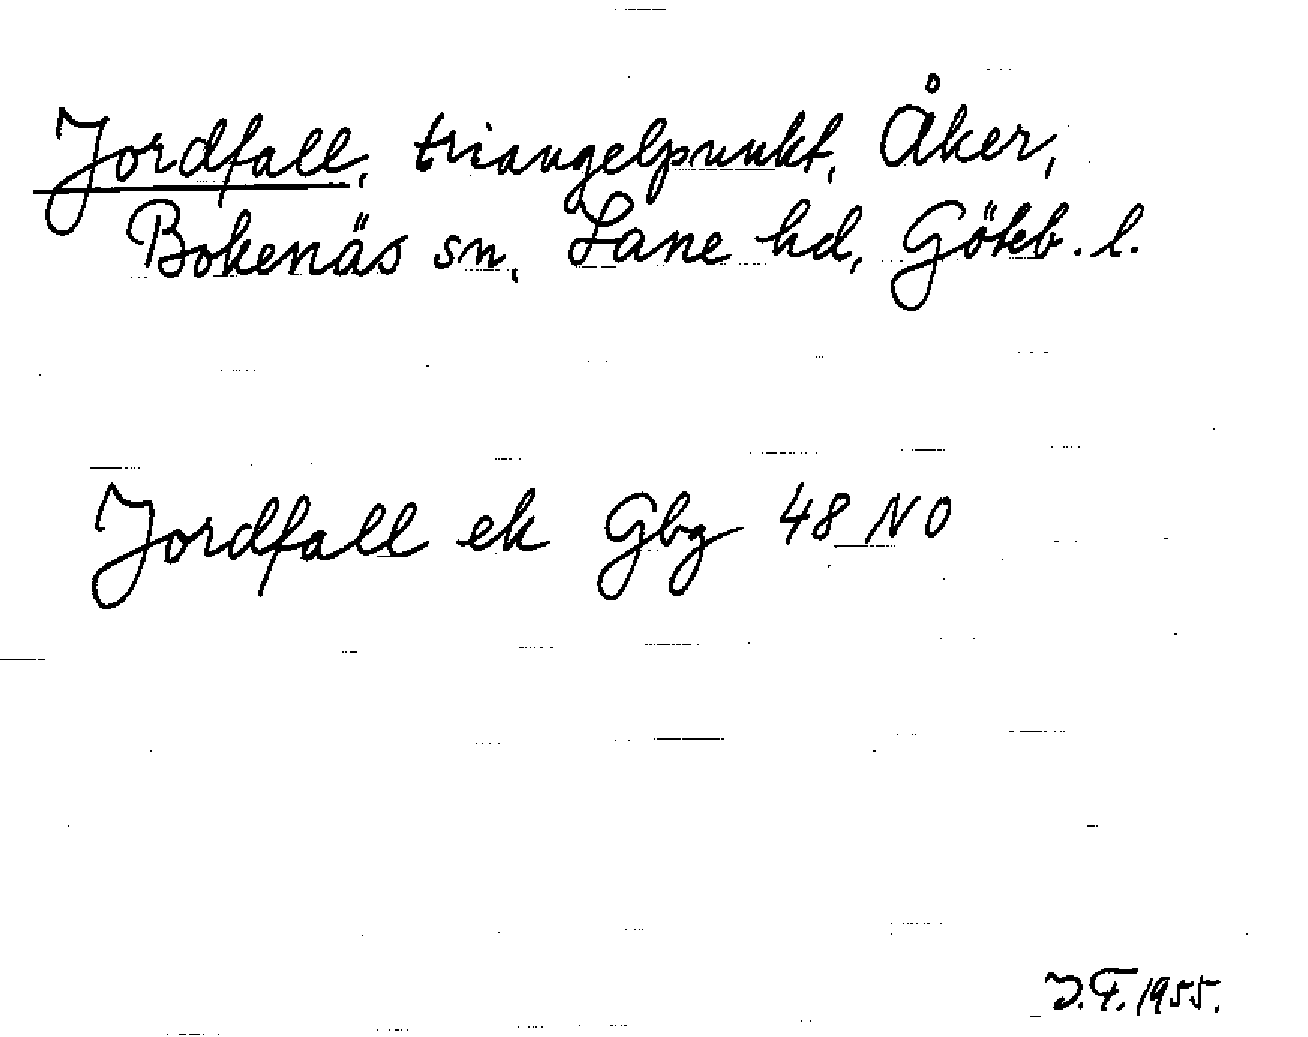 Jordfall, triangelpunkt, Åker,
Bokenäs sn, Lane hd, Göteb. l.
Jordfall ek Gbg 48 NO
J.F. 1955.